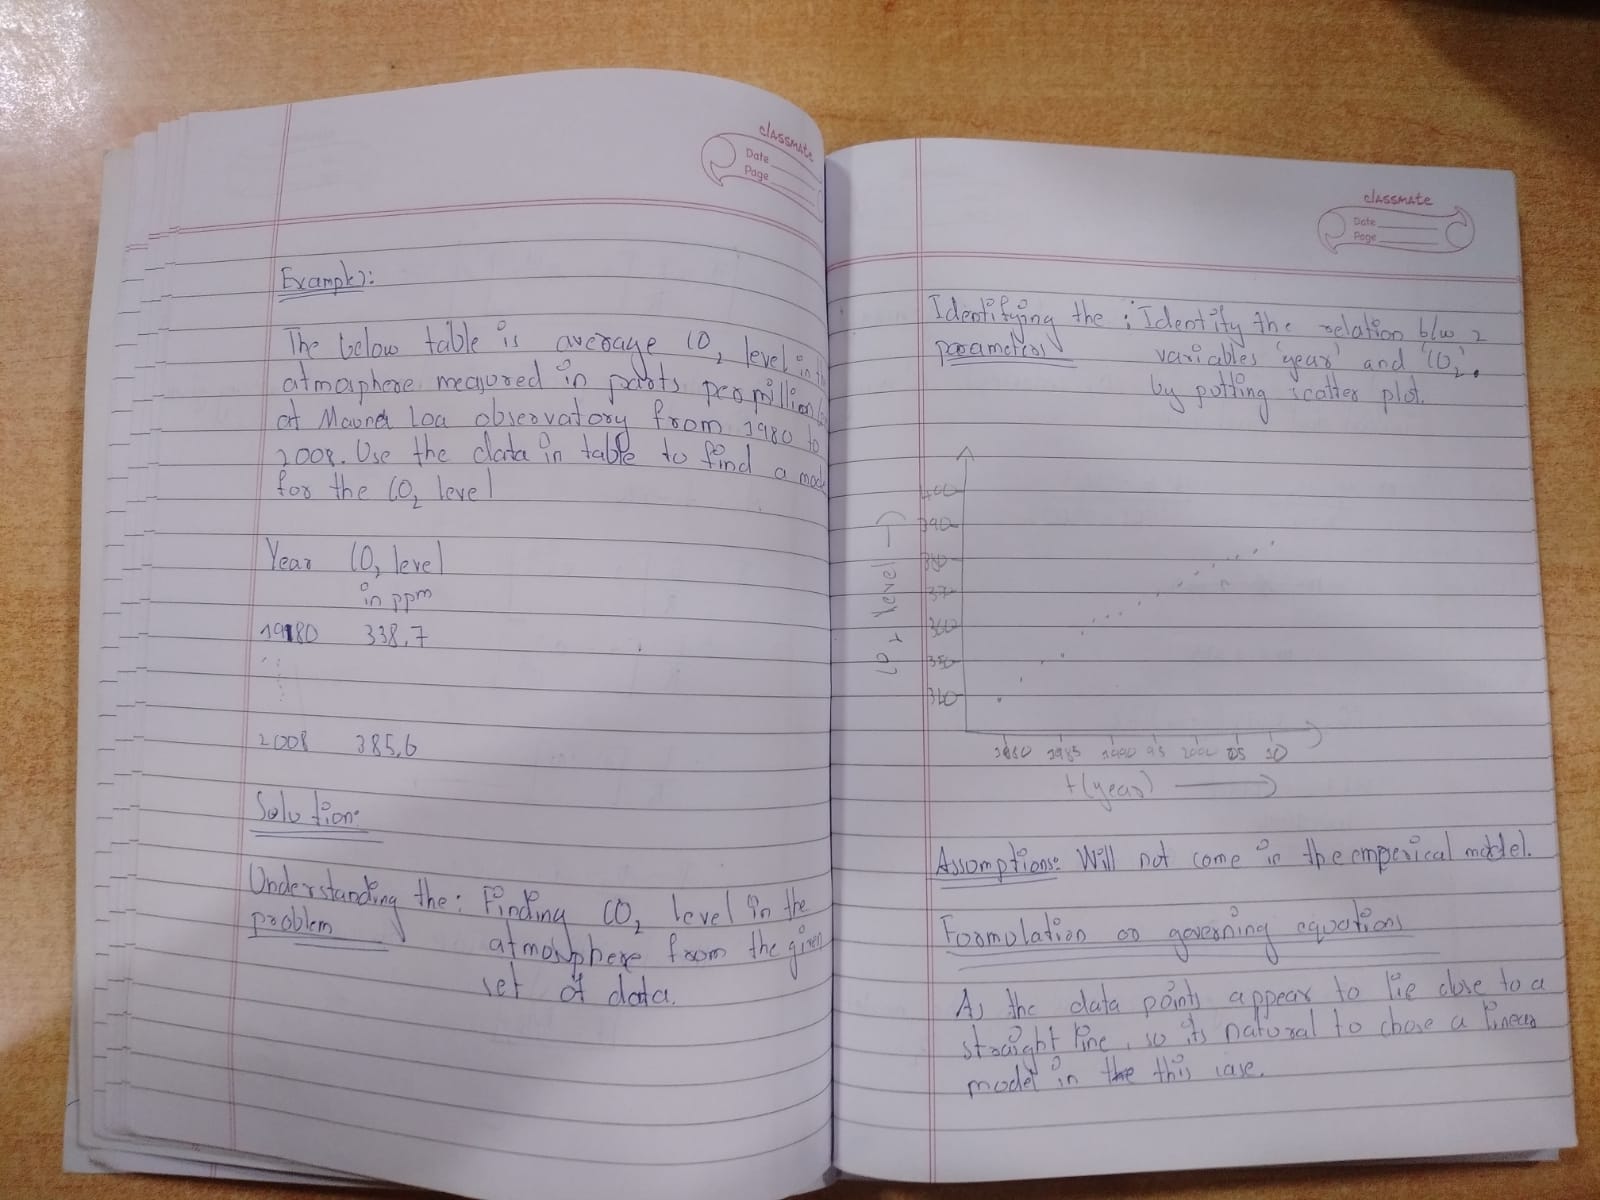 classmate
Date
Page
Example:
The below table is average CO2 level in the
atmosphere measured in parts per million
at Mauna Loa observatory from 1980 to
2008. Use the data in table to find a
for the CO2 level
Year CO2 level
in ppm
1980 338.7
2008 385.6
Solution:
Understanding the : Finding CO2 level in the
problem atmosphere from the given
set of data.
classmate
Date
Page
Identifying the : Identify the relation b/w 2
parameters variables 'year' and 'CO2'.
by putting scatter plot.
400
390
380
370
360
350
340
CO2 level →
1980 1985 1990 95 2000 05 10
t(year) →
Assumptions: Will not come in the emperical model.
Formulation or governing equations
As the data points appear to lie close to a
straight line, so its natural to chose a linear
model in the this case.